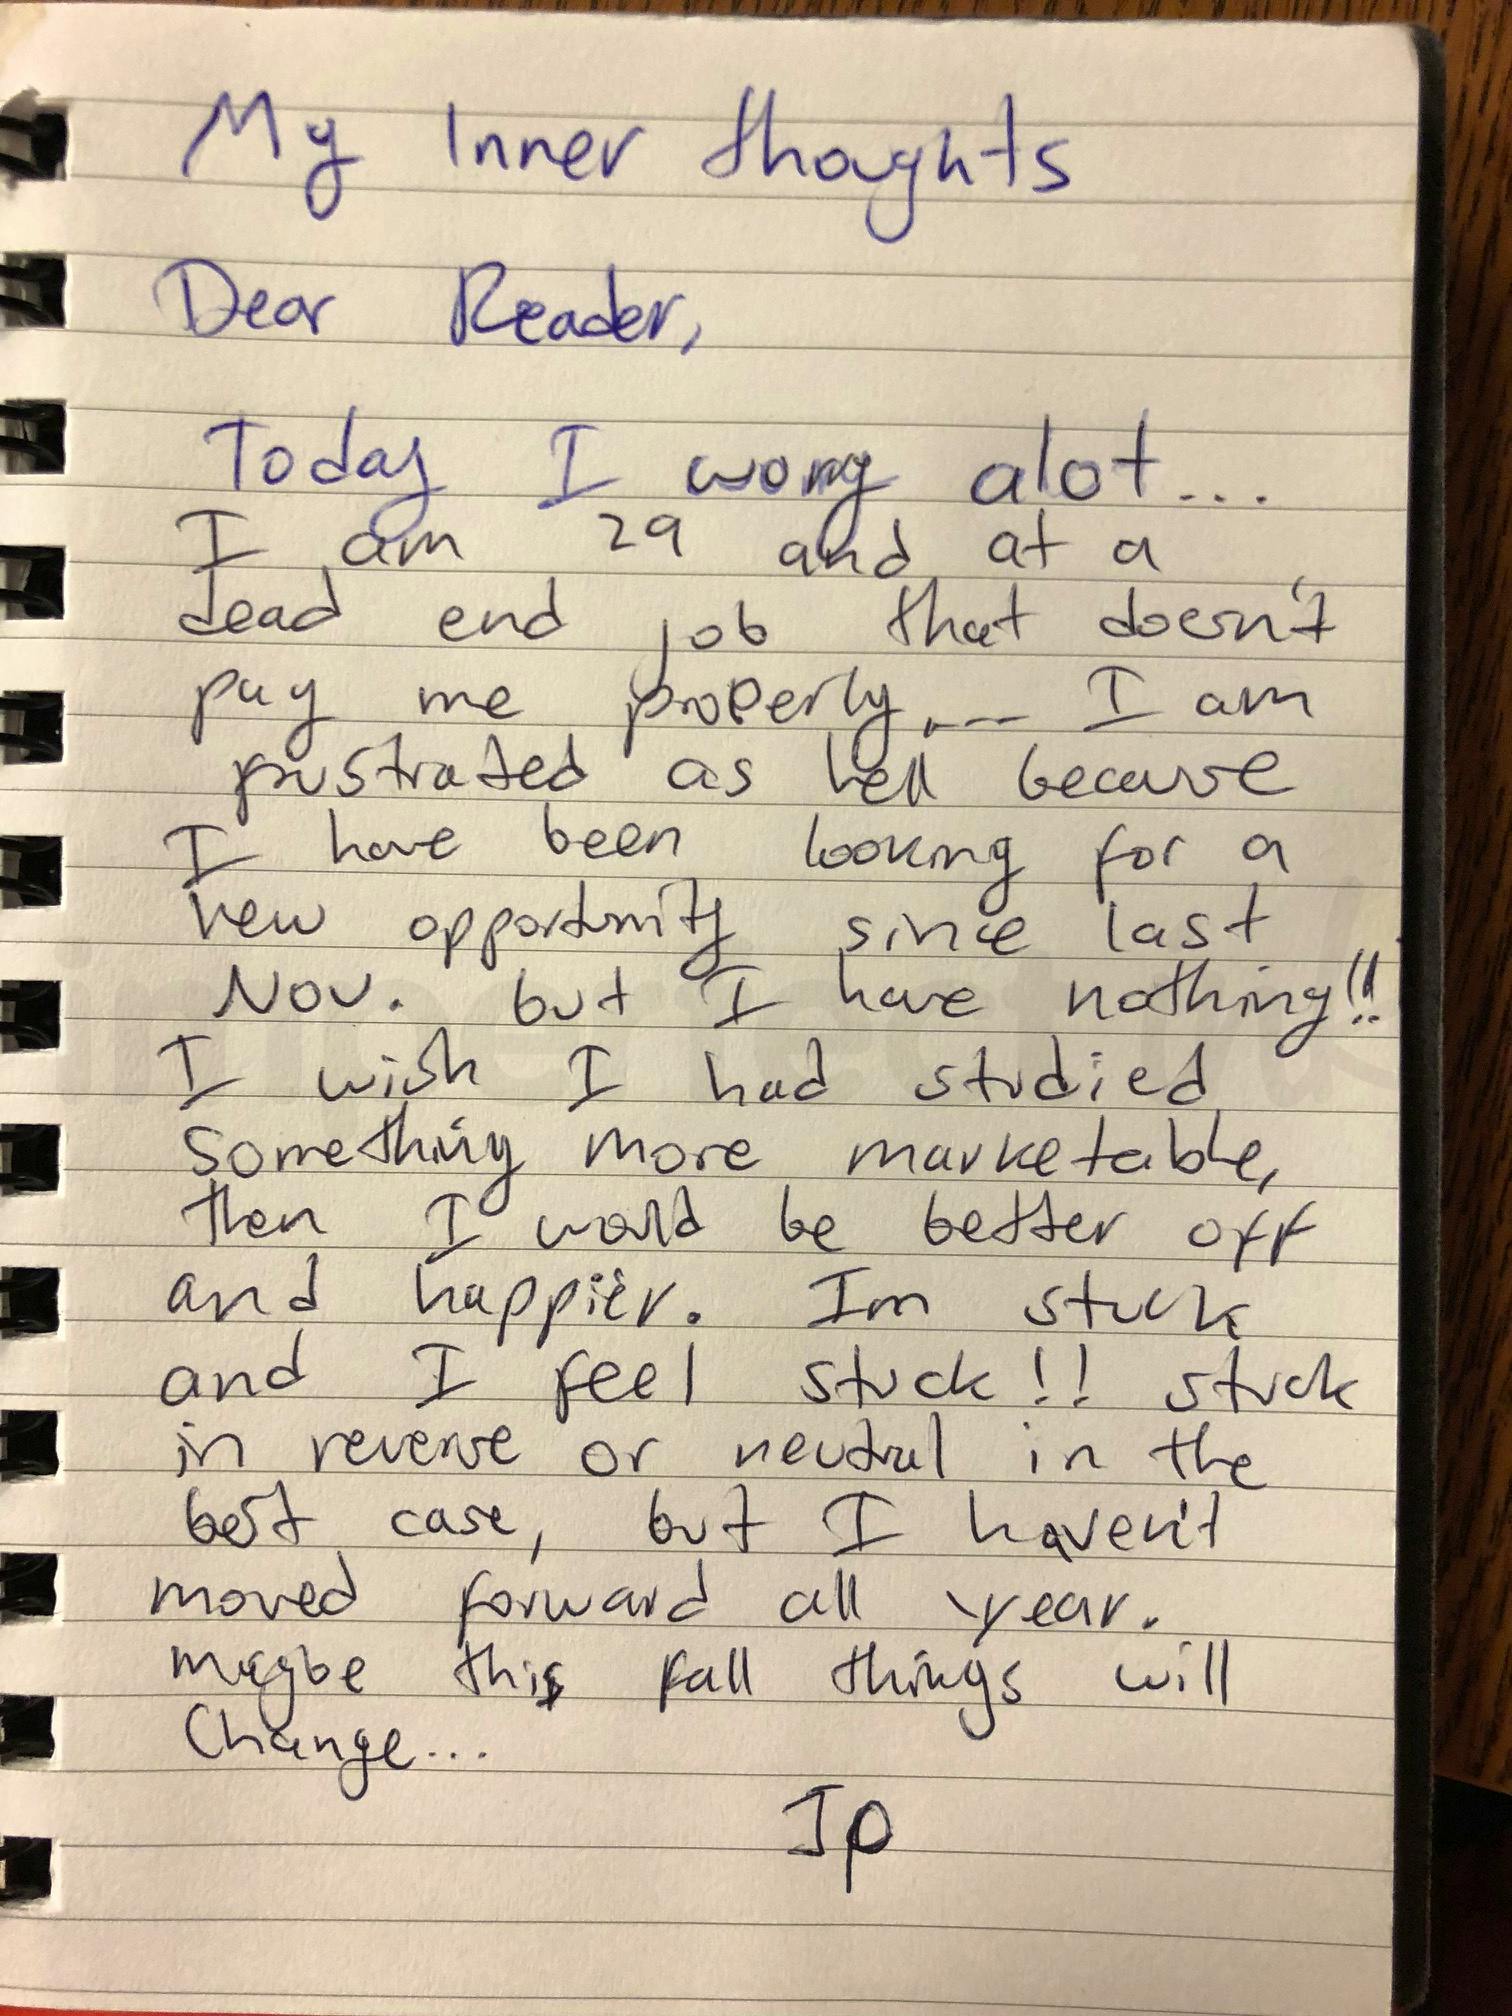 My Inner thoughts
Dear Reader,
Today I worry alot...
I am 29 and at a
dead end job that doesn't
pay me properly... I am
frustrated as hell because
I have been looking for a
new opportunity since last
Nov. but I have nothing!!
I wish I had studied
something more marketable,
then I would be better off
and happier. Im stuck
and I feel stuck!! stuck
in reverse or neutral in the
best case, but I haven't
moved forward all year.
maybe this fall things will
Change...
JP